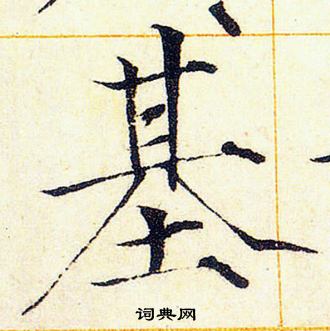 基
词典网